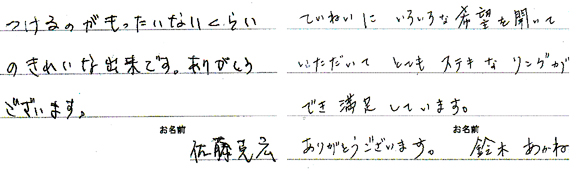 つけるのがもったいないくらい
のきれいな出来です。ありがとう
ございます。
お名前
佐藤克広
ていねいに いろいろな希望を聞いて
いただいて とてもステキなリングが
でき満足しています。
お名前
ありがとうございます。 鈴木あかね